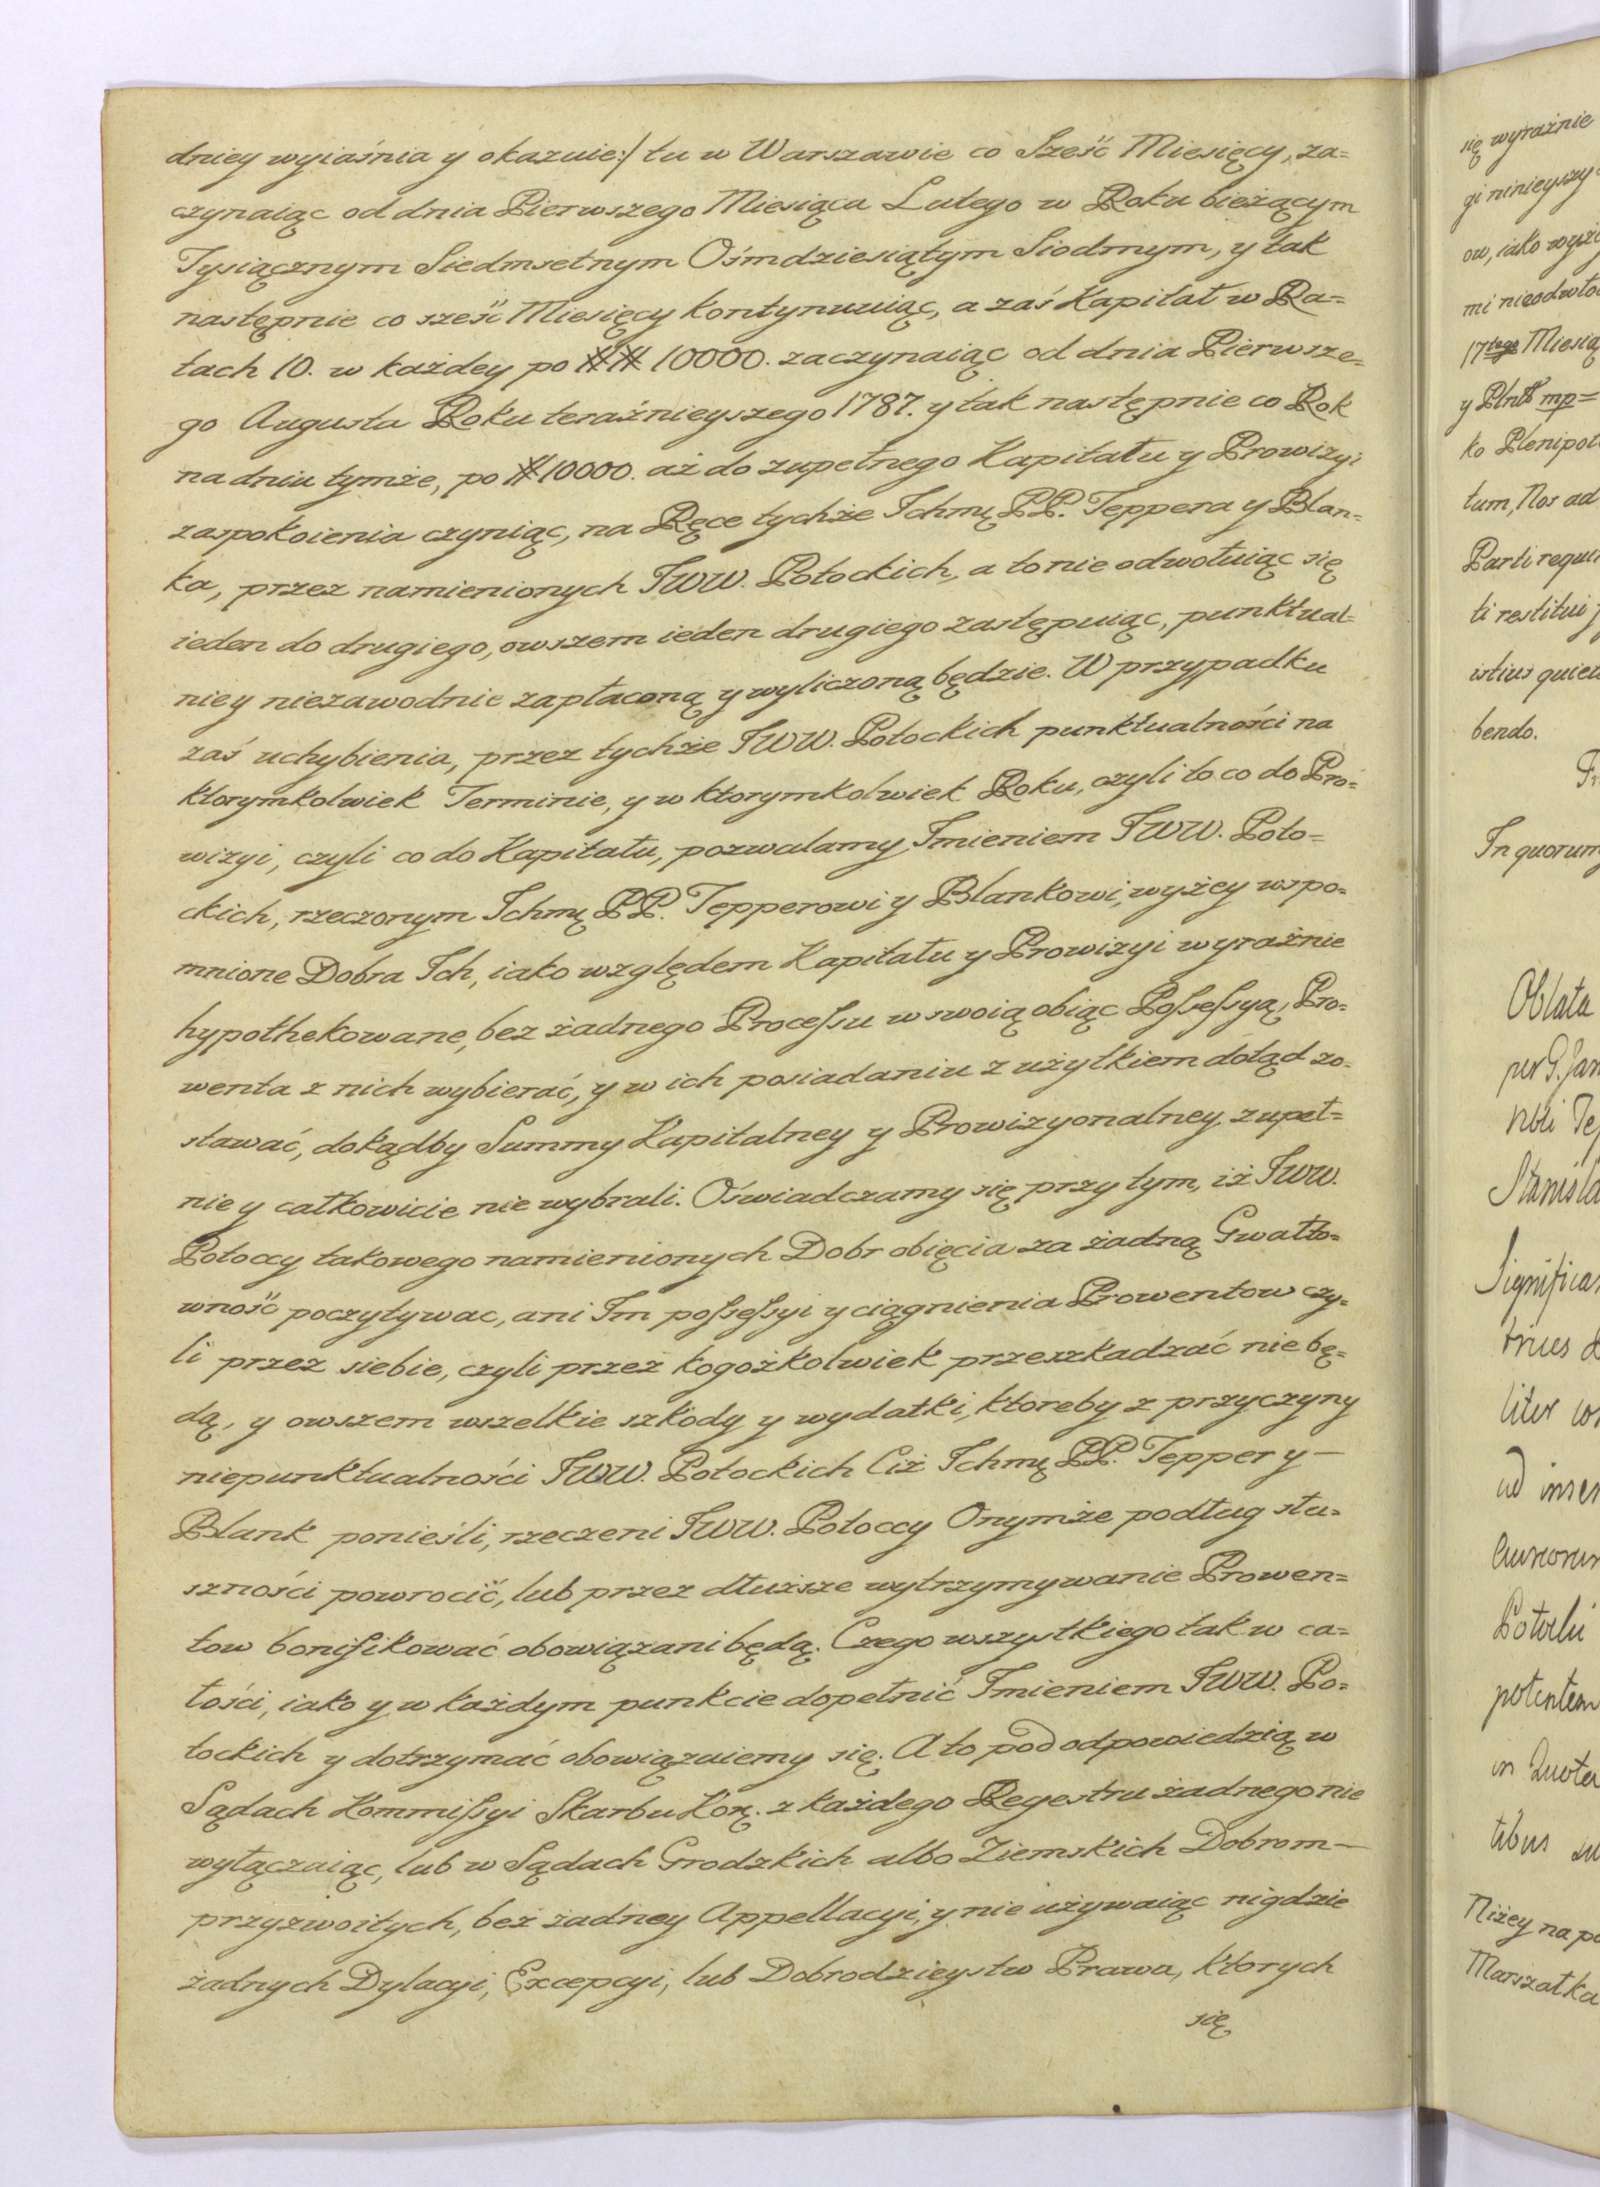 dniey wyiaśnia y okazuie:/ tu w Warszawie co Sześć Miesięcy, za=
czynaiąc od dnia Pierwszego Miesiąca Lutego w Roku bieżącym
Tysiącznym Siedmsetnym Ośmdziesiątym Siodmym, y tak
następnie co sześć Miesięcy kontynuuiąc, a zaś Kapitał w Ra=
tach 10. w każdey po ## 10000. zaczynaiąc od dnia Pierwsze=
go Augusta Roku teraźnieyszego 1787. y tak następnie co Rok
na dniu tymże, po # 10000. aż do zupełnego Kapitału y Prowizyi
zaspokoienia czyniąc, na Ręce tychże Ichmę PP. Teppera y Blan=
ka, przez namienionych JWW. Potockich, a to nie odwołuiąc się
ieden do drugiego, owszem ieden drugiego zastępuiąc, punktual=
nie y niezawodnie zapłaconą y wyliczoną będzie. W przypadku
zaś uchybienia, przez tychże JWW. Potockich punktualności na
ktorymkolwiek Terminie, y w ktorymkolwiek Roku, czyli to co do Pro=
wizyi, czyli co do Kapitału, pozwalamy Imieniem JWW. Poto=
ckich, rzeczonym Ichmę PP. Tepperowi y Blankowi, wyżey wspo=
mnione Dobra Ich, iako względem Kapitału y Prowizyi wyraźnie
hypothekowane, bez żadnego Processu w swoią obiąc Possessyą, Pro=
wenta z nich wybierać, y w ich posiadaniu z użytkiem dotąd zo=
stawać, dokądby Summy Kapitalney y Prowizyonalney, zupeł=
nie y całkowicie nie wybrali. Oświadczamy się przy tym, iż JWW.
Potoccy takowego namienionych Dobr obięcia za żadną Gwałto=
wność poczytywac, ani Im possessyi y ciągnienia Prowentow czy=
li przez siebie, czyli przez kogożkolwiek przeszkadzać nie bę=
dą, y owszem wszelkie szkody y wydatki, ktoreby z przyczyny
niepunktualności JWW. Potockich Ciż Ichmę PP. Tepper y —
Blank ponieśli, rzeczeni JWW. Potoccy Onymże podług słu=
szności powrocić, lub przez dłuższe wytrzymywanie Prowen=
tow bonifikować obowiązani będą. Czego wszystkiego tak w ca=
łości, iako y w każdym punkcie dopełnić Imieniem JWW. Po=
tockich y dotrzymać obowiązuiemy się. A to pod odpowiedzią w
Sądach Kommissyi Skarbu Korę. z każdego Regestru żadnego nie
wyłączaiąc, lub w Sądach Grodzkich albo Ziemskich Dobrom —
przyzwoitych, bez żadney Appellacyi, y nie używaiąc nigdzie
żadnych Dylacyi, Excepcyi, lub Dobrodzieystw Prawa, ktorych
się
się wyraźnie
gi ninieyszy
ow, iako wyży
mi nieodwło
17tego Miesią
y Plntt mp=
ko Plenipot
tum, Nos ad
Parti requi
ti restitui
istius quie
bendo.
In quorum
Oblata
per G. Jan
Nbli Te
Stanisla
Significa
liter co
ad inser
Potocki
potentem
in Quote
tibus
Niżey na po
Marszałka